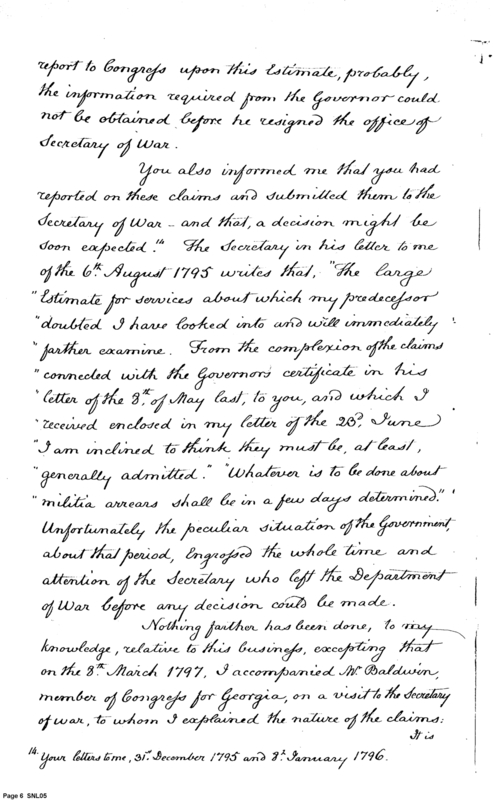 report to Congress upon this Estimate, probably,
the information required from the Governor could
not be obtained before he resigned the office of
Secretary of War.
You also informed me that you had
reported on these claims and submitted them to the
Secretary of War – and that, a decision might be
soon expected.14 The Secretary in his letter to me
of the 6th. August 1795 writes that, "The large
"Estimate for services about which my predecessor
"doubted I have looked into and will immediately
"farther examine. From the complexion of the claims
"connected with the Governors certificate in his
"letter of the 8th. of May last, to you, and which I
"received enclosed in my letter of the 23d. June
"I am inclined to think they must be, at least,
"generally admitted." "Whatever is to be done about
"militia arrears shall be in a few days determined."
Unfortunately the peculiar situation of the Government,
about that period, Engrossed the whole time and
attention of the Secretary who left the Department
of War before any decision could be made.
Nothing farther has been done, to my
knowledge, relative to this business, excepting that
on the 8th. March 1797, I accompanied Mr. Baldwin,
member of Congress for Georgia, on a visit to the Secretary
of war, to whom I explained the nature of the claims:
It is
14. Your letters to me, 31st. December 1795 and 8th. January 1796.
Page 6 SNL05